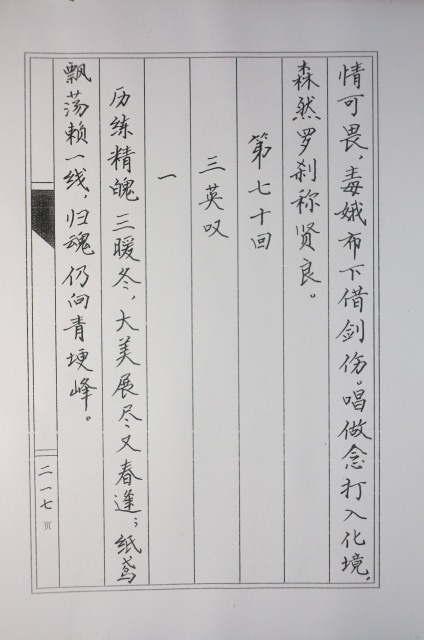 情可畏，毒娥布下借剑伤。唱做念打入化境，
森然罗刹称贤良。
第七十回
三英叹
一
历练精魄三暖冬，大美展尽又春逢；纸鸢
飘荡赖一线，归魂仍向青埂峰。
二一七页